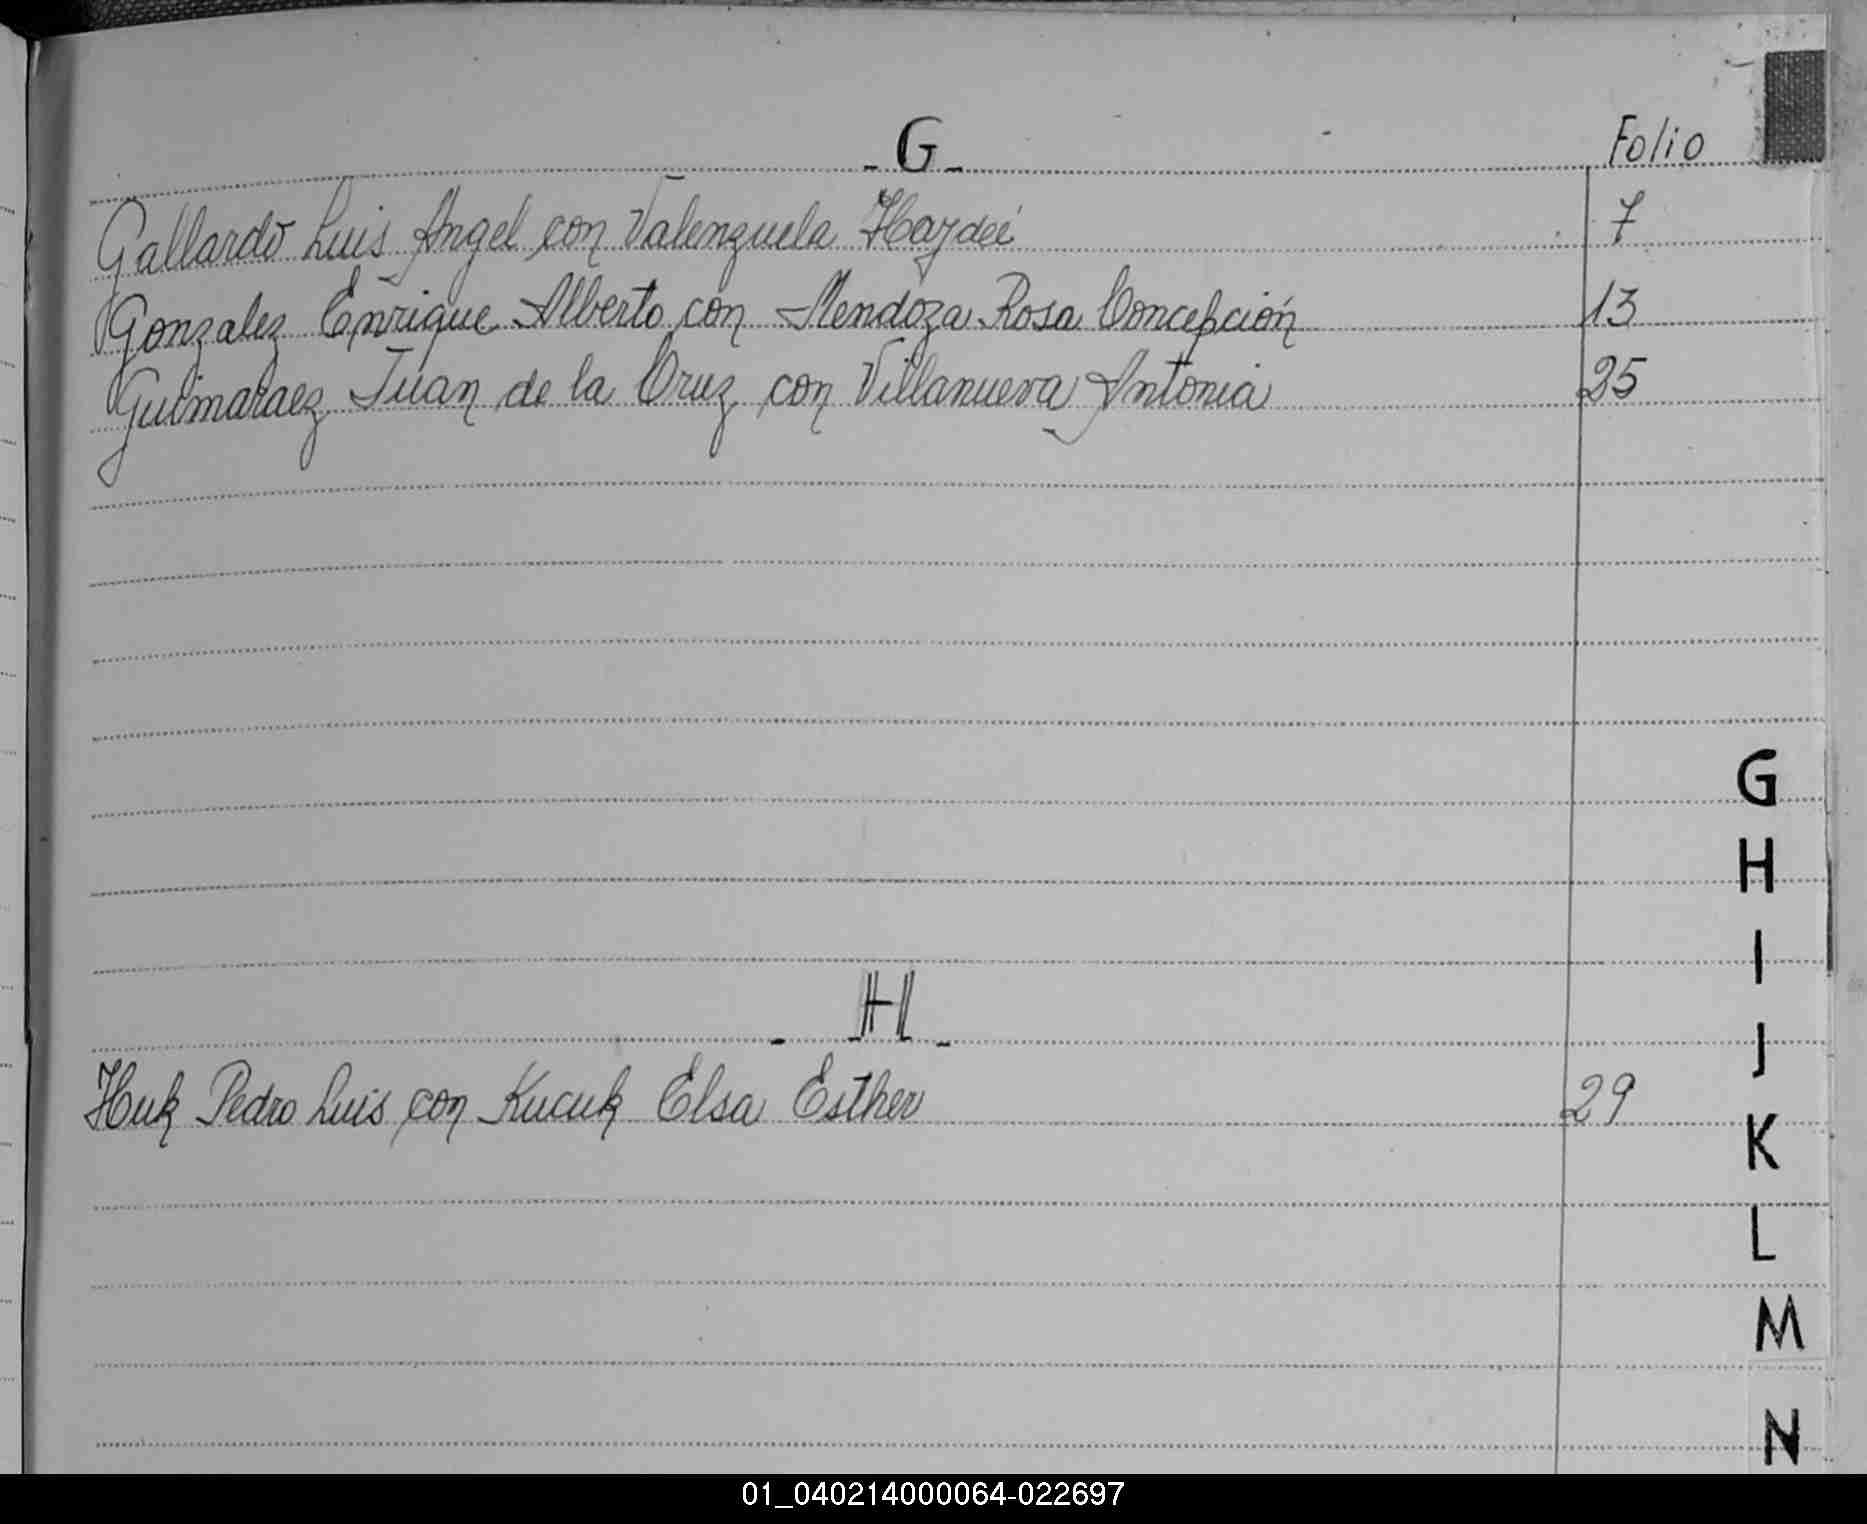 - G -
Folio
Gallardo Luis Angel con Valenzuela Haydeé 7
Gonzalez Enrique Alberto con Mendoza Rosa Concepción 13
Guimaraez Juan de la Cruz con Villanueva Antonia 25
- H -
Huk Pedro Luis con Kucuk Elsa Esther 29
G
H
I
J
K
L
M
N
01_040214000064-022697